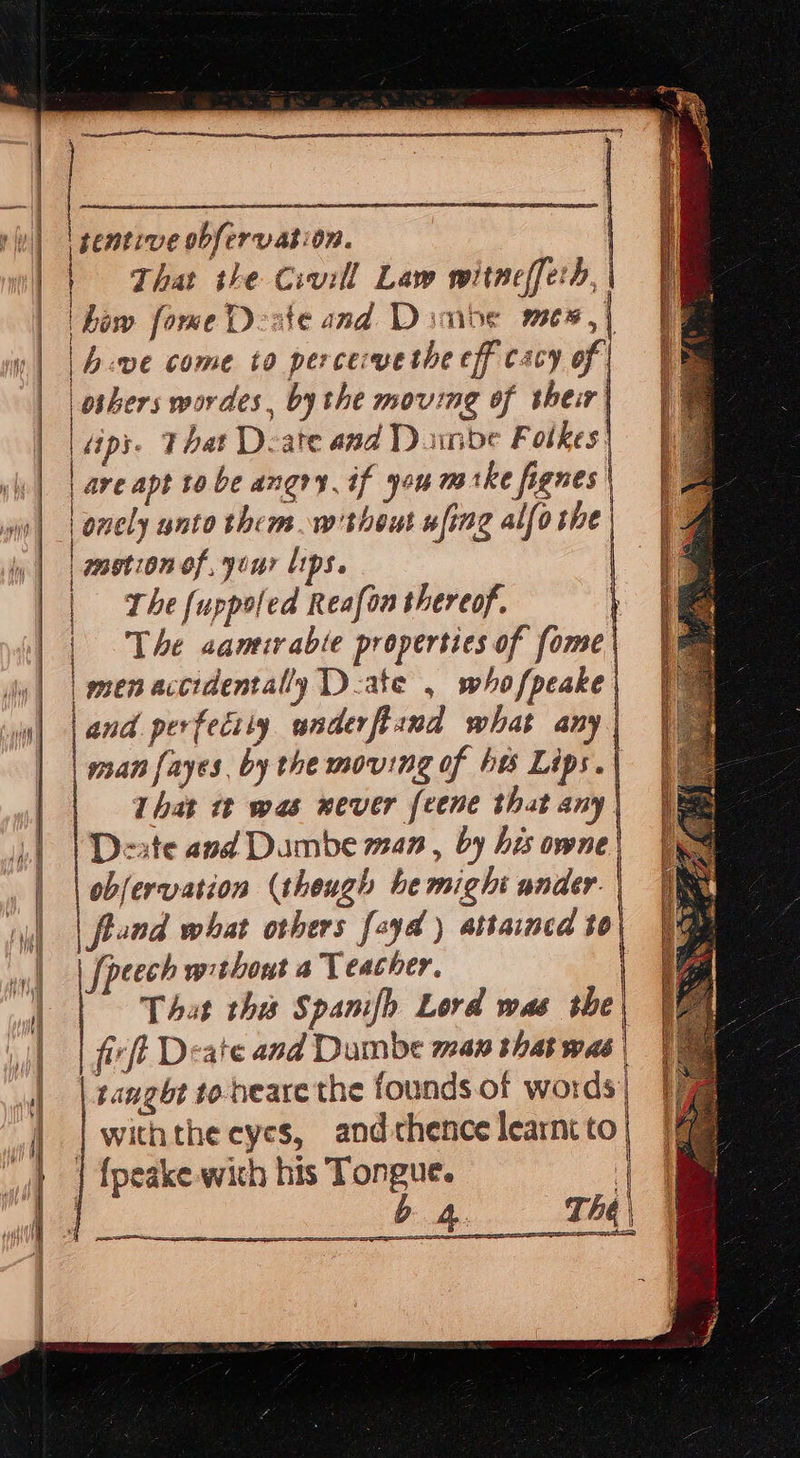 tentive obſervation.
That the Civill Law witneſſeth,
how ſome Deafe and Dumbe men,
have come to perceive the efficacy of
others wordes, by the moving of their
lips. That Deafe and Dumbe Folkes
are apt to be angry, if you make ſignes
onely unto them without uſing alſo the
motion of your lips.
The ſuppoſed Reaſon thereof.
The admirable properties of ſome
men accidentally Deafe, who ſpeake
and perfectly underſtand what any
man ſayes, by the moving of his Lips.
That it was never ſeene that any
Deafe and Dumbe man, by his owne
obſervation (though he might under-
ſtand what others ſayd) attained to
ſpeech without a Teacher.
That this Spaniſh Lord was the
firſt Deafe and Dumbe man that was
taught to heare the ſounds of words
with the eyes, and thence learnt to
ſpeake with his Tongue.
b 4. The